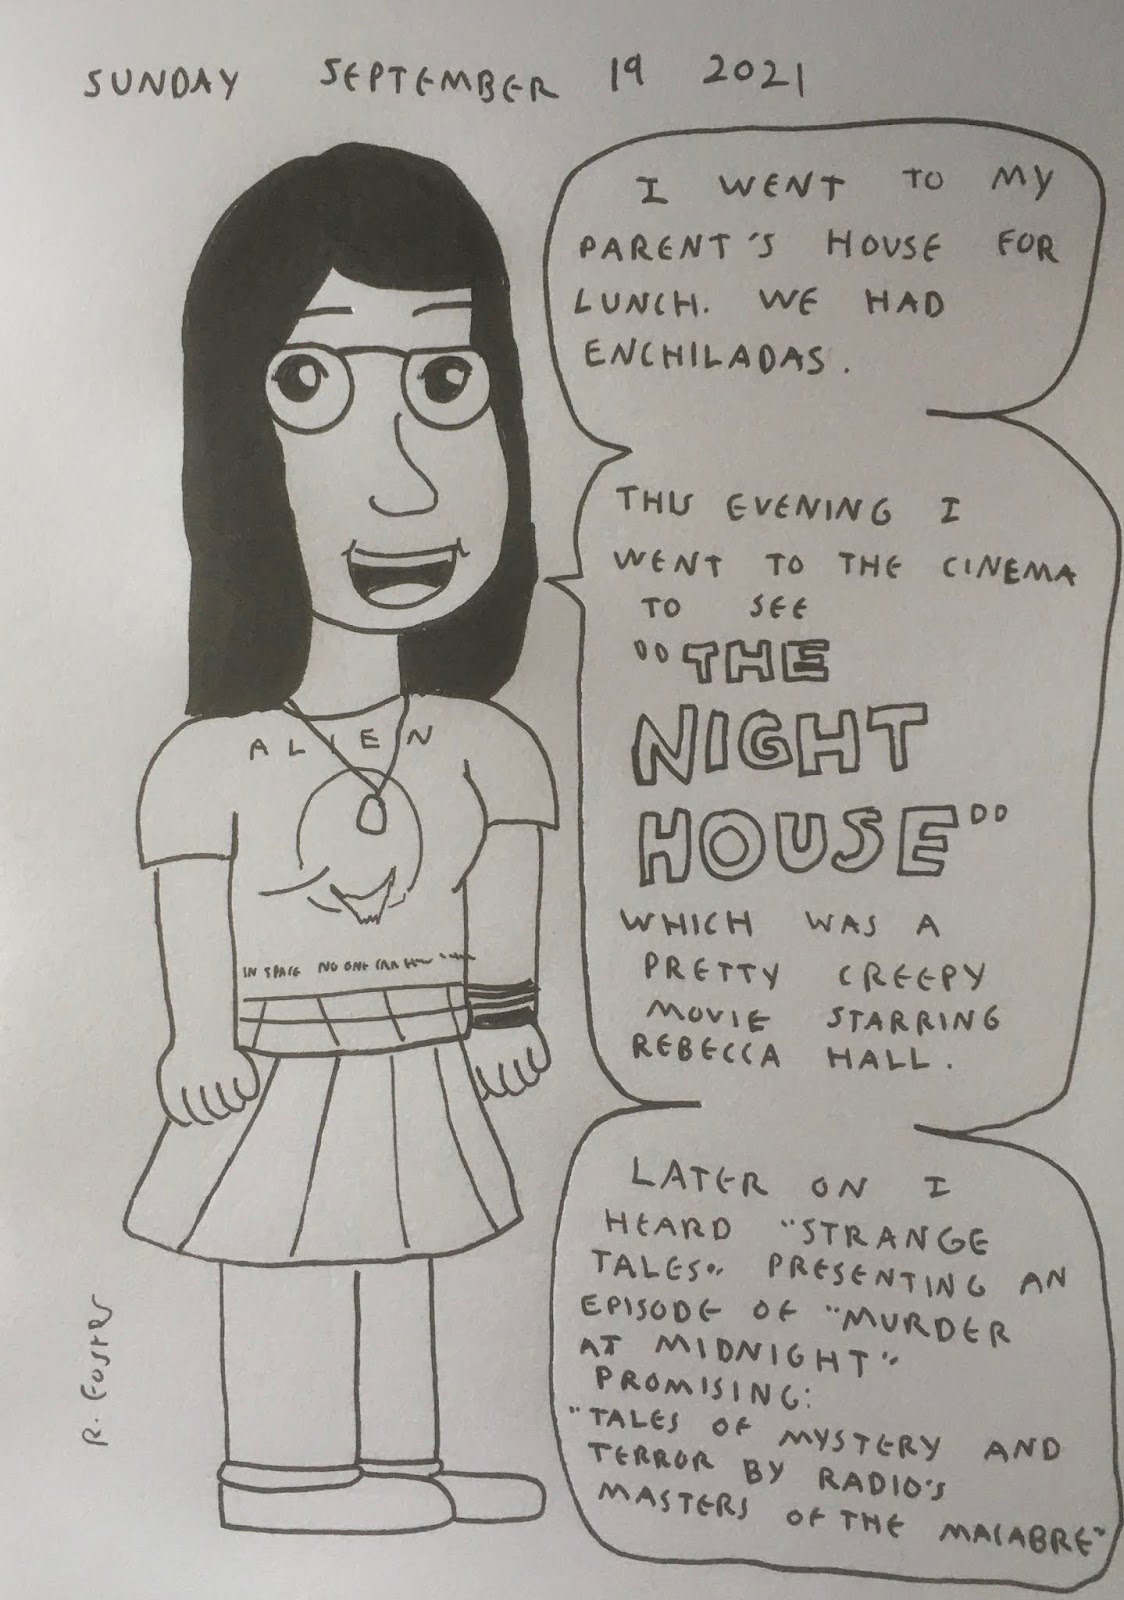 SUNDAY SEPTEMBER 19 2021
I WENT TO MY
PARENT'S HOUSE FOR
LUNCH. WE HAD
ENCHILADAS.
THIS EVENING I
WENT TO THE CINEMA
TO SEE
"THE
NIGHT
HOUSE"
WHICH WAS A
PRETTY CREEPY
MOVIE STARRING
REBECCA HALL.
LATER ON I
HEARD "STRANGE
TALES" PRESENTING AN
EPISODE OF "MURDER
AT MIDNIGHT"
PROMISING:
"TALES OF MYSTERY AND
TERROR BY RADIO'S
MASTERS OF THE MACABRE"
ALIEN
IN SPACE NO ONE CAN
R. FOSTER